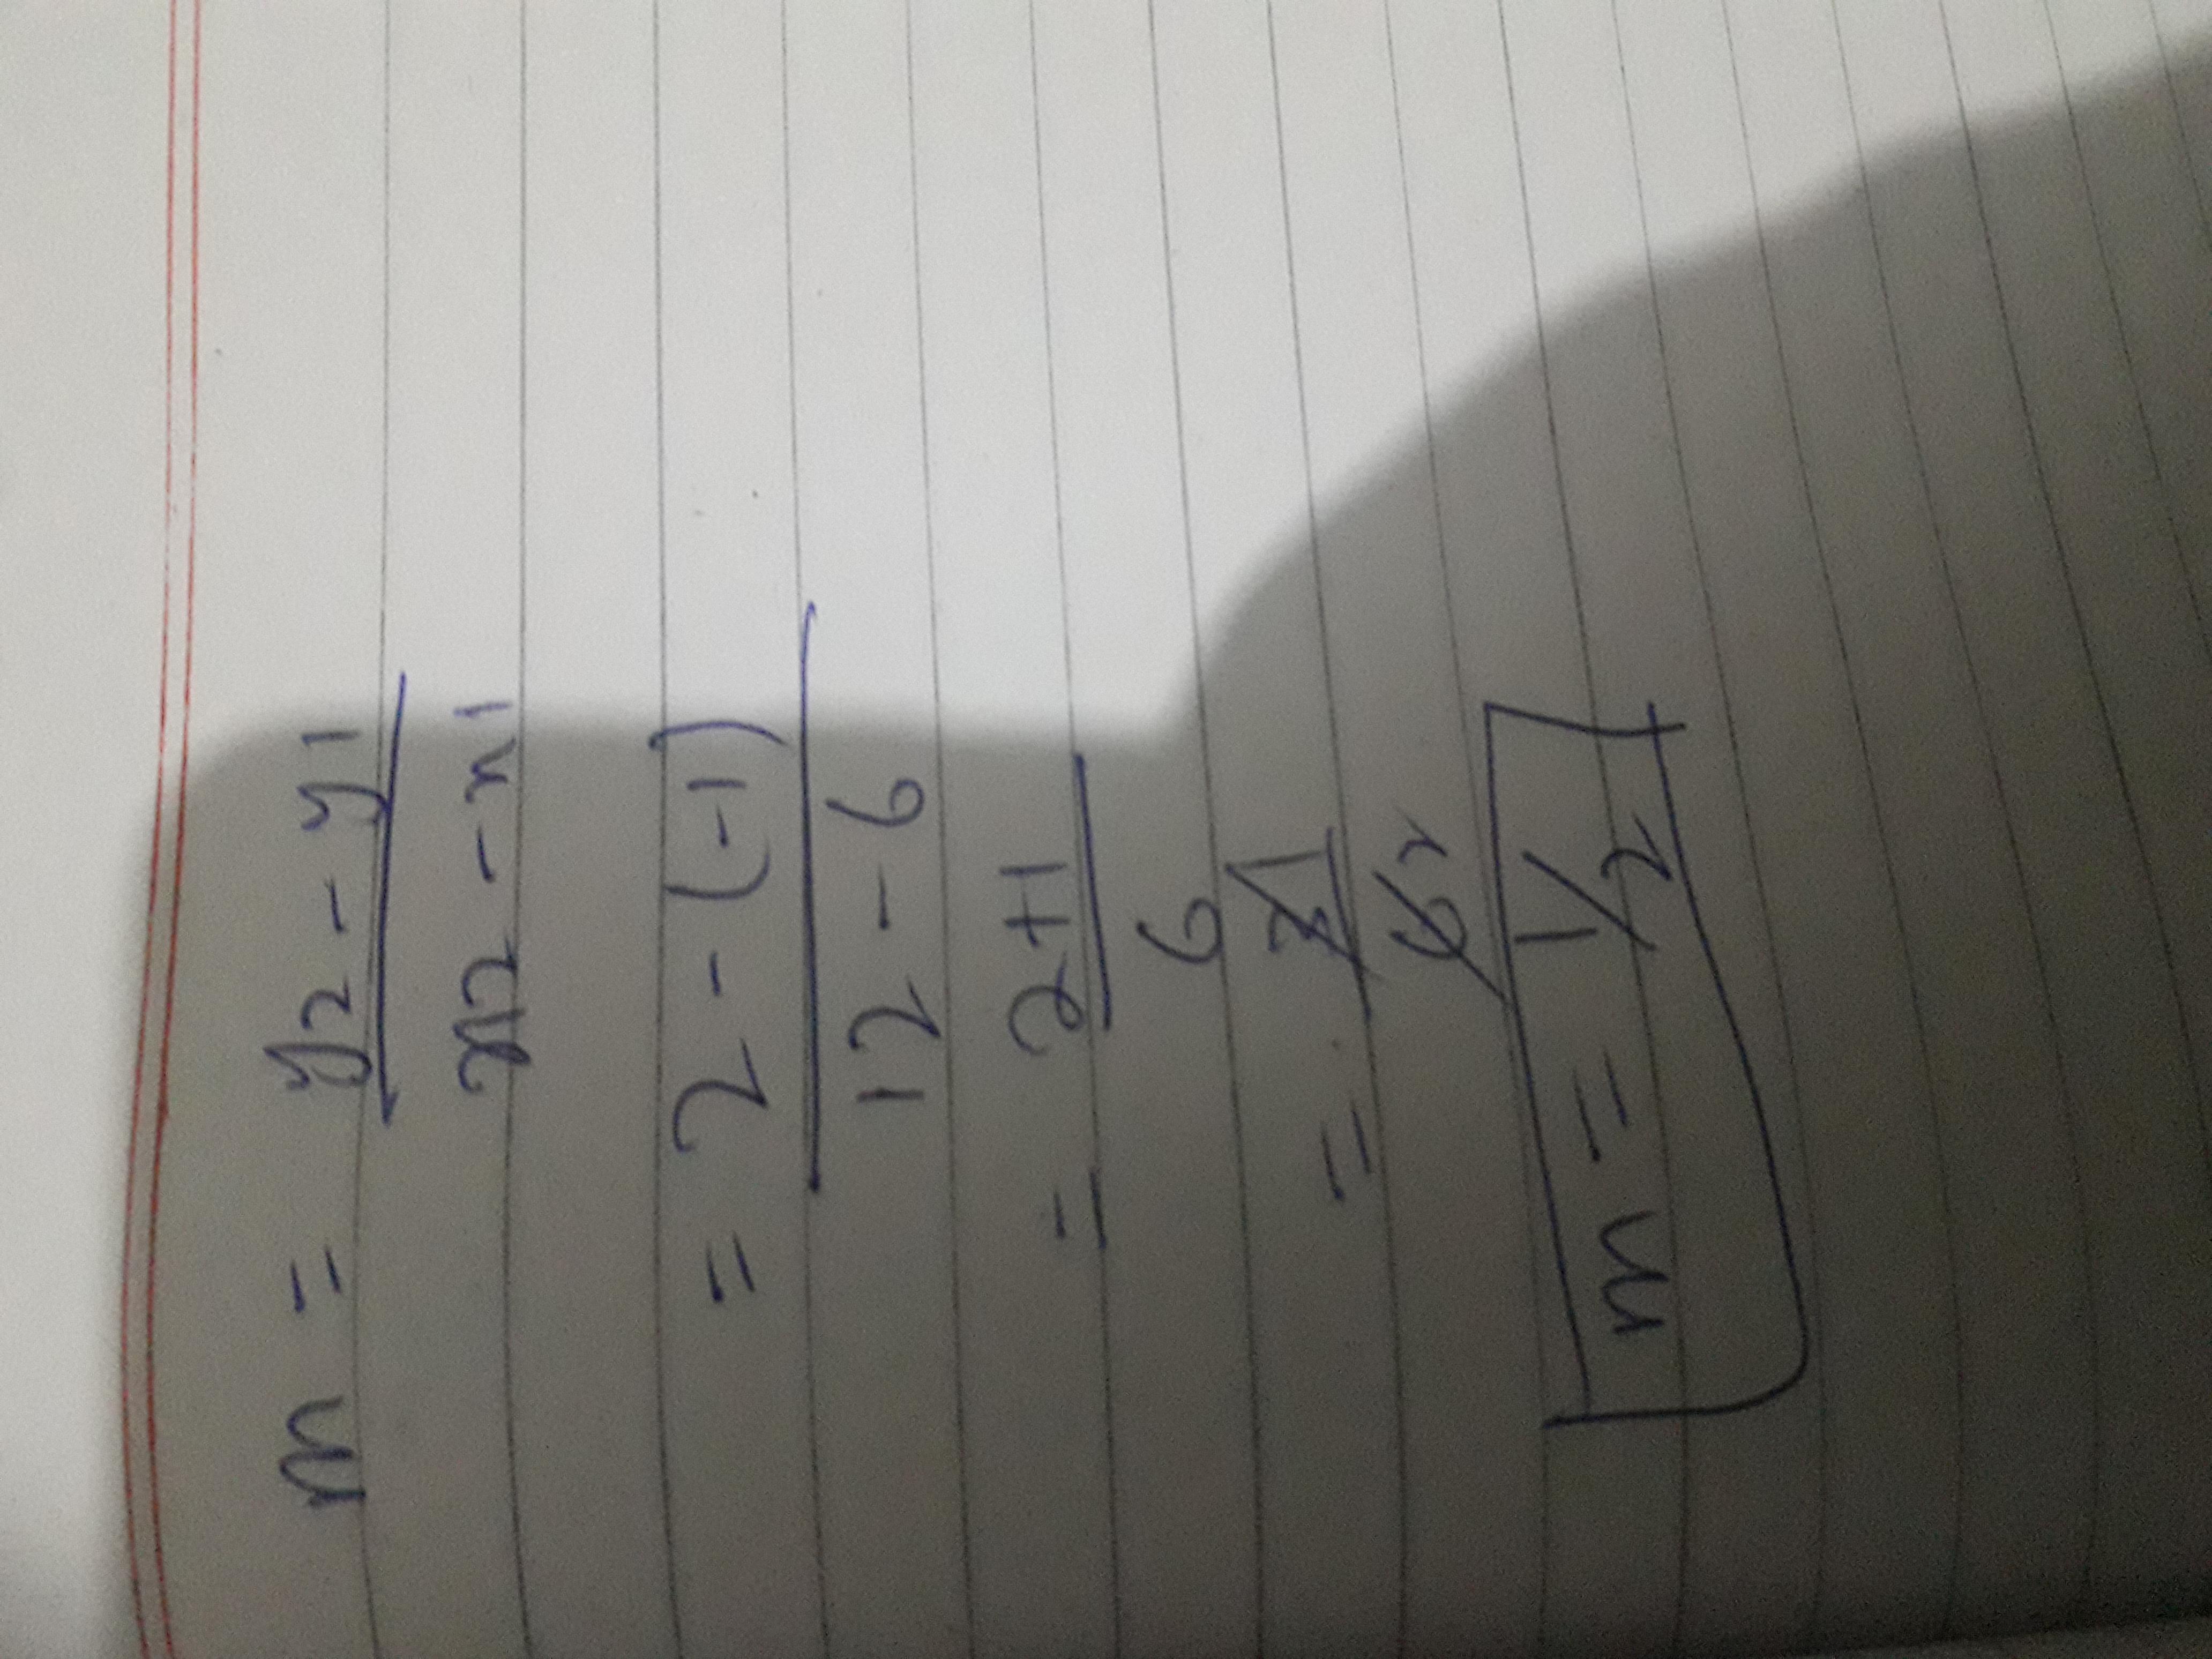 m = y2 - y1
x2 - x1
= 2 - (-1)
12 - 6
= 2+1
6
= 3 1
6 2
m = 1/2